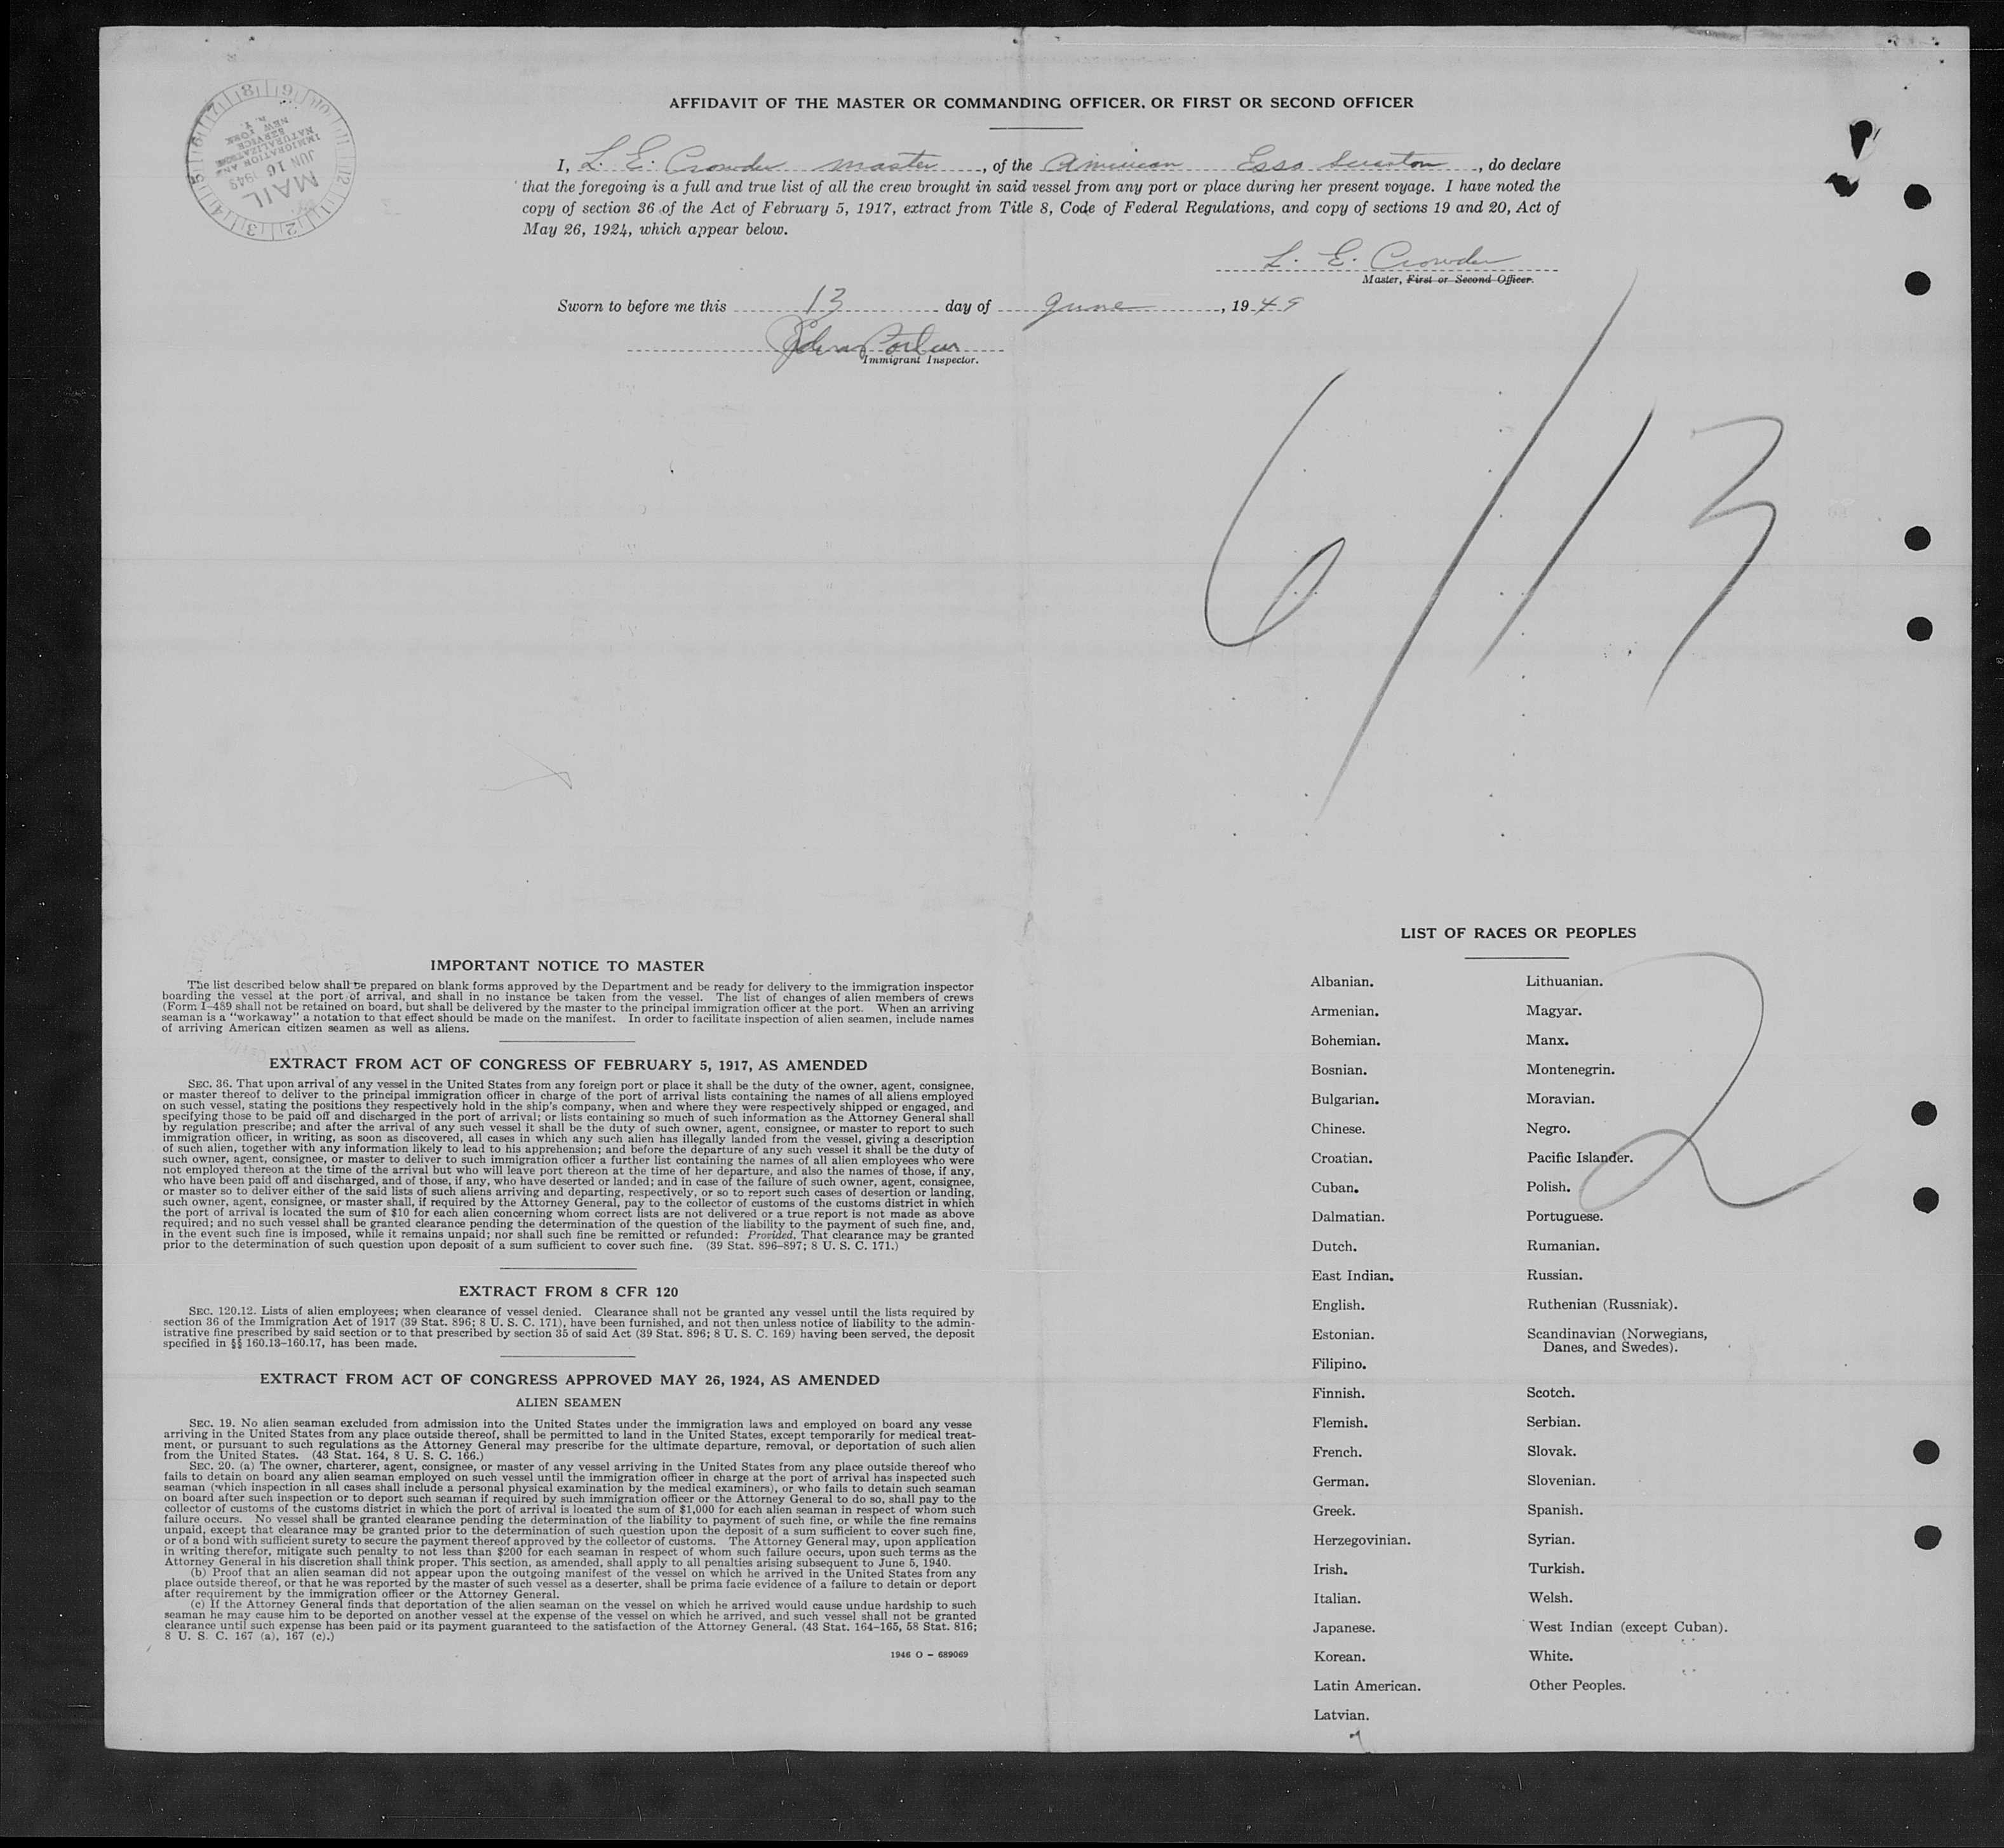 AFFIDAVIT OF THE MASTER OR COMMANDING OFFICER, OR FIRST OR SECOND OFFICER
I, L. E. Crowder master, of the American Esso Scranton, do declare
that the foregoing is a full and true list of all the crew brought in said vessel from any port or place during her present voyage. I have noted the
copy of section 36 of the Act of February 5, 1917, extract from Title 8, Code of Federal Regulations, and copy of sections 19 and 20, Act of
May 26, 1924, which appear below.
L. E. Crowder
Master, First or Second Officer.
Sworn to before me this 13 day of June, 1949
Immigrant Inspector.
MAIL
JUN 16 1949
IMMIGRATION AND
NATURALIZATION
SERVICE
NEW YORK
N. Y.
6/13
IMPORTANT NOTICE TO MASTER
The list described below shall be prepared on blank forms approved by the Department and be ready for delivery to the immigration inspector
boarding the vessel at the port of arrival, and shall in no instance be taken from the vessel. The list of changes of alien members of crews
(Form I-489 shall not be retained on board, but shall be delivered by the master to the principal immigration officer at the port. When an arriving
seaman is a "workaway" a notation to that effect should be made on the manifest. In order to facilitate inspection of alien seamen, include names
of arriving American citizen seamen as well as aliens.
EXTRACT FROM ACT OF CONGRESS OF FEBRUARY 5, 1917, AS AMENDED
SEC. 36. That upon arrival of any vessel in the United States from any foreign port or place it shall be the duty of the owner, agent, consignee,
or master thereof to deliver to the principal immigration officer in charge of the port of arrival lists containing the names of all aliens employed
on such vessel, stating the positions they respectively hold in the ship's company, when and where they were respectively shipped or engaged, and
specifying those to be paid off and discharged in the port of arrival; or lists containing so much of such information as the Attorney General shall
by regulation prescribe; and after the arrival of any such vessel it shall be the duty of such owner, agent, consignee, or master to report to such
immigration officer, in writing, as soon as discovered, all cases in which any such alien has illegally landed from the vessel, giving a description
of such alien, together with any information likely to lead to his apprehension; and before the departure of any such vessel it shall be the duty of
such owner, agent, consignee, or master to deliver to such immigration officer a further list containing the names of all alien employees who were
not employed thereon at the time of the arrival but who will leave port thereon at the time of her departure, and also the names of those, if any,
who have been paid off and discharged, and of those, if any, who have deserted or landed; and in case of the failure of such owner, agent, consignee,
or master so to deliver either of the said lists of such aliens arriving and departing, respectively, or so to report such cases of desertion or landing,
such owner, agent, consignee, or master shall, if required by the Attorney General, pay to the collector of customs of the customs district in which
the port of arrival is located the sum of $10 for each alien concerning whom correct lists are not delivered or a true report is not made as above
required; and no such vessel shall be granted clearance pending the determination of the question of the liability to the payment of such fine, and,
in the event such fine is imposed, while it remains unpaid; nor shall such fine be remitted or refunded: Provided, That clearance may be granted
prior to the determination of such question upon deposit of a sum sufficient to cover such fine. (39 Stat. 896-897; 8 U. S. C. 171.)
EXTRACT FROM 8 CFR 120
SEC. 120.12. Lists of alien employees; when clearance of vessel denied. Clearance shall not be granted any vessel until the lists required by
section 36 of the Immigration Act of 1917 (39 Stat. 896; 8 U. S. C. 171), have been furnished, and not then unless notice of liability to the admin-
istrative fine prescribed by said section or to that prescribed by section 35 of said Act (39 Stat. 896; 8 U. S. C. 169) having been served, the deposit
specified in §§ 160.13-160.17, has been made.
EXTRACT FROM ACT OF CONGRESS APPROVED MAY 26, 1924, AS AMENDED
ALIEN SEAMEN
SEC. 19. No alien seaman excluded from admission into the United States under the immigration laws and employed on board any vesse
arriving in the United States from any place outside thereof, shall be permitted to land in the United States, except temporarily for medical treat-
ment, or pursuant to such regulations as the Attorney General may prescribe for the ultimate departure, removal, or deportation of such alien
from the United States. (43 Stat. 164, 8 U. S. C. 166.)
SEC. 20. (a) The owner, charterer, agent, consignee, or master of any vessel arriving in the United States from any place outside thereof who
fails to detain on board any alien seaman employed on such vessel until the immigration officer in charge at the port of arrival has inspected such
seaman (which inspection in all cases shall include a personal physical examination by the medical examiners), or who fails to detain such seaman
on board after such inspection or to deport such seaman if required by such immigration officer or the Attorney General to do so, shall pay to the
collector of customs of the customs district in which the port of arrival is located the sum of $1,000 for each alien seaman in respect of whom such
failure occurs. No vessel shall be granted clearance pending the determination of the liability to payment of such fine, or while the fine remains
unpaid, except that clearance may be granted prior to the determination of such question upon the deposit of a sum sufficient to cover such fine,
or of a bond with sufficient surety to secure the payment thereof approved by the collector of customs. The Attorney General may, upon application
in writing therefor, mitigate such penalty to not less than $200 for each seaman in respect of whom such failure occurs, upon such terms as the
Attorney General in his discretion shall think proper. This section, as amended, shall apply to all penalties arising subsequent to June 5, 1940.
(b) Proof that an alien seaman did not appear upon the outgoing manifest of the vessel on which he arrived in the United States from any
place outside thereof, or that he was reported by the master of such vessel as a deserter, shall be prima facie evidence of a failure to detain or deport
after requirement by the immigration officer or the Attorney General.
(c) If the Attorney General finds that deportation of the alien seaman on the vessel on which he arrived would cause undue hardship to such
seaman he may cause him to be deported on another vessel at the expense of the vessel on which he arrived, and such vessel shall not be granted
clearance until such expense has been paid or its payment guaranteed to the satisfaction of the Attorney General. (43 Stat. 164-165, 58 Stat. 816;
8 U. S. C. 167 (a), 167 (c).)
1946 O - 689069
LIST OF RACES OR PEOPLES
Albanian.
Armenian.
Bohemian.
Bosnian.
Bulgarian.
Chinese.
Croatian.
Cuban.
Dalmatian.
Dutch.
East Indian.
English.
Estonian.
Filipino.
Finnish.
Flemish.
French.
German.
Greek.
Herzegovinian.
Irish.
Italian.
Japanese.
Korean.
Latin American.
Latvian.
Lithuanian.
Magyar.
Manx.
Montenegrin.
Moravian.
Negro.
Pacific Islander.
Polish.
Portuguese.
Rumanian.
Russian.
Ruthenian (Russniak).
Scandinavian (Norwegians,
Danes, and Swedes).
Scotch.
Serbian.
Slovak.
Slovenian.
Spanish.
Syrian.
Turkish.
Welsh.
West Indian (except Cuban).
White.
Other Peoples.
2